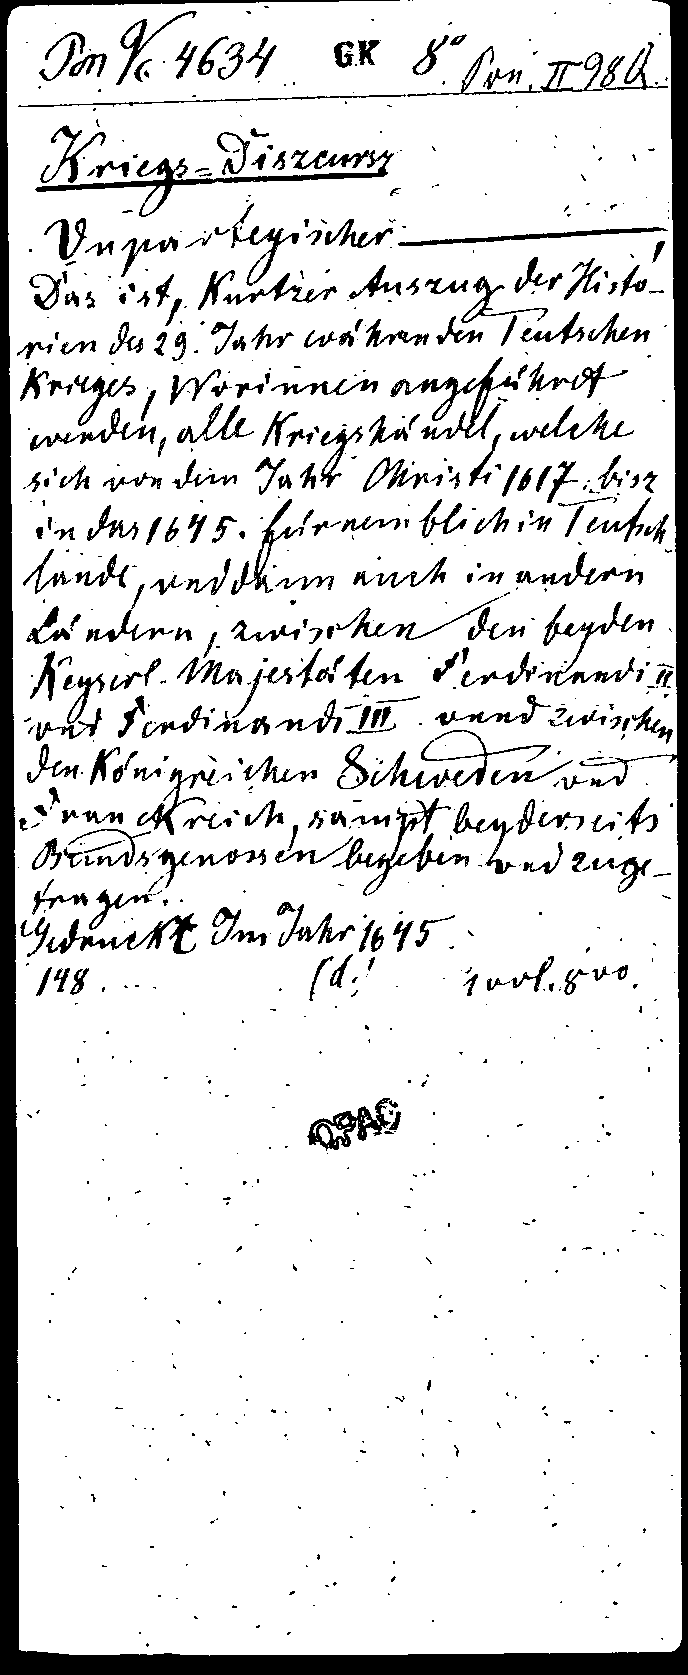 Pon Vc 4634 GK 8° Pon. II 98 Q
Kriegs=Diszcursz
Vnparteyischer
Das ist, Kurtzer Auszzug der Histo-
rien des 29. Jahr währenden Teutschen
Krieges, Worinnen angeführet
werden, alle Kriegshändel, welche
sich von dem Jahr Christi 1617. bisz
in das 1645. fürnemblich in Teutsch
lande, vnd dann auch in andern
Ländern, zwischen den beyden
Keyserl. Majestäten Ferdinandi II
vnd Ferdinandi III vnnd zwischen
den Königreichen Schweden vnd
Franckreich, sampt beyderseits
Bundsgenossen begeben vnd zuge-
tragen.
Gedruckt Im Jahr 1645
148 (d.)
OPAC